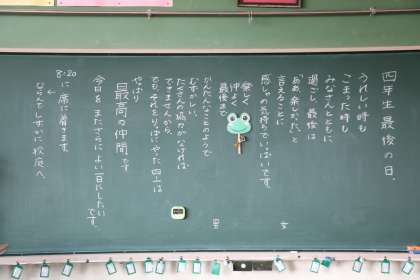 四年生最後の日。
うれしい時も
こまった時も
みなさんとともに
過ごし、最後は
「ああ、楽しかった」と
言えることに
感しゃの気持ちでいっぱいです。
楽しく
仲よく
最後まで
かんたんなことのようで
むずかしい、
たくさんの協力がなければ
できませんから。
でも、それをりっぱにやった四一は
やっぱり
最高の仲間です
今日を、またさらによい一日にしたい
です。
8:20
に席に着きます。
↓
ならんでしずかに校庭へ。
男
女